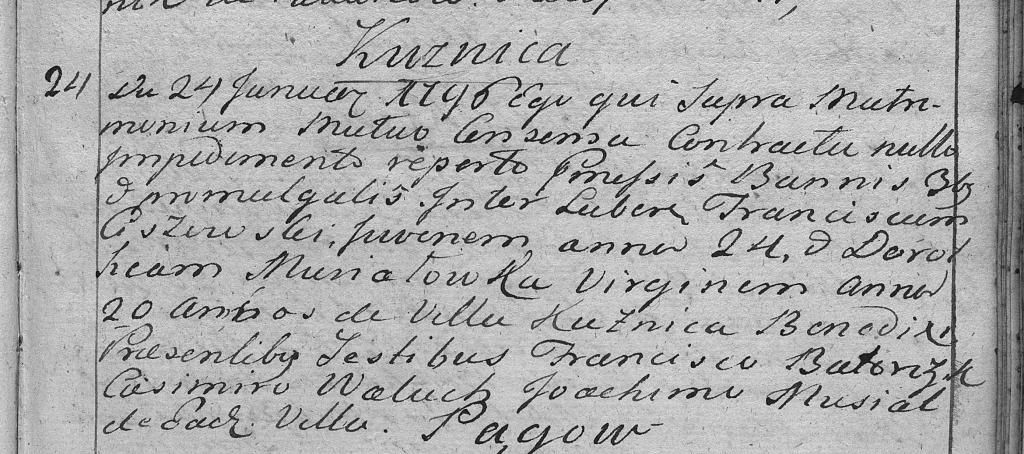 Kuznica
24 Die 24 Januar 1796 Ego qui Supra Matri-
monium Mutuo Consensu Contractu nullo
impedimento reperto Bannis 3bz
& promulgatis Inter Laborz Franciscum
Juvenem annor 24, & Dorot
heam Musiałowka Virginem annor
20 Ambos de Villa Kuźnica Benedixi
Præsentibz Testibus Francisco
Casimiro Waluch Joachimo Musiał
de Ead. Villa. Pągow